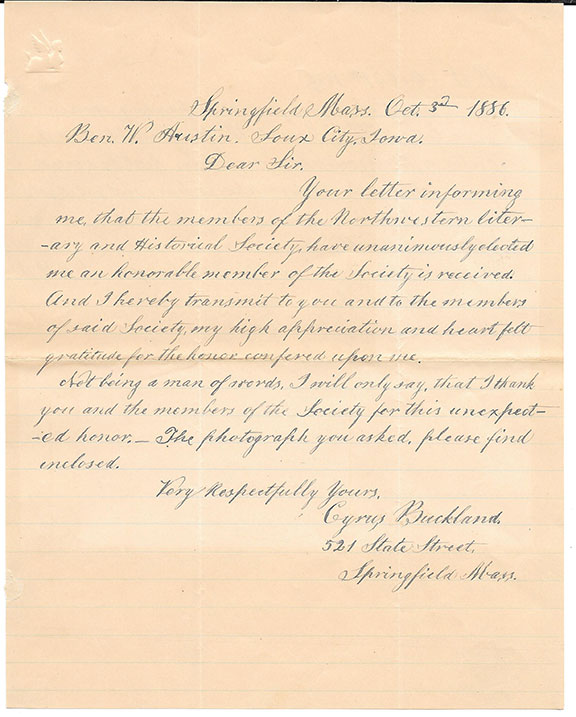 Springfield Mass. Oct. 3d 1886.
Ben. W. Austin. Soux City, Iowa.
Dear Sir.
Your letter informing
me, that the members of the Northwestern liter-
-ary and Historical Society, have unanimously elected
me an honorable member of the Society is received.
And I hereby transmit to you and to the members
of said Society, my high appreciation and heart felt
gratitude for the honor confered upon me.
Not being a man of words, I will only say, that I thank
you and the members of the Society for this unexpect-
-ed honor. — The photograph you asked, please find
inclosed.
Very Respectfully Yours,
Cyrus Buckland.
521 State Street.
Springfield Mass.